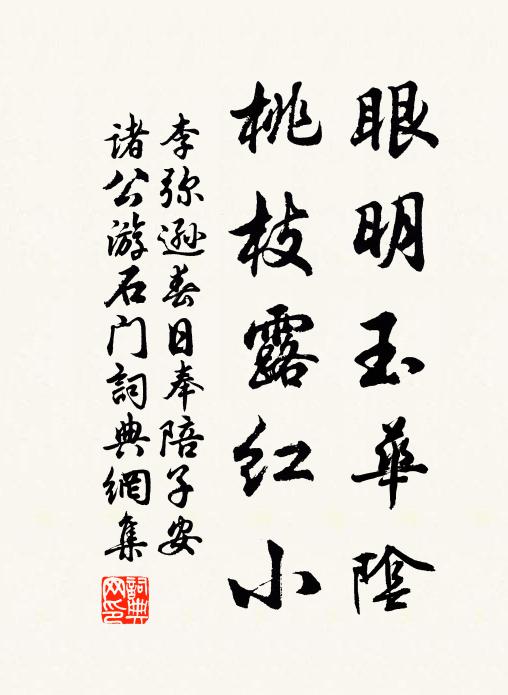 眼明玉華陰
桃枝露红小
李弥遜春日奉陪子安
诸公游石门詞典網集
詞典
网印